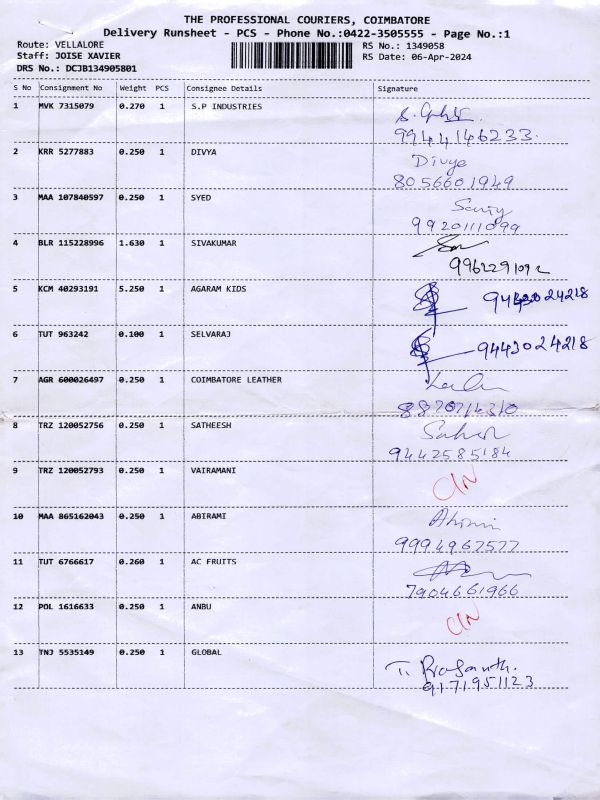 THE PROFESSIONAL COURIERS, COIMBATORE
Delivery Runsheet - PCS - Phone No.:0422-3505555 - Page No.:1
Route: VELLALORE
Staff: JOISE XAVIER
DRS No.: DCJB134905801
RS No.: 1349058
RS Date: 06-Apr-2024
S No Consignment No Weight PCS Consignee Details Signature
1 MVK 7315079 0.270 1 S.P INDUSTRIES
9944146233.
2 KRR 5277883 0.250 1 DIVYA Divya
8056601949
3 MAA 107840597 0.250 1 SYED
9920111099
4 BLR 115228996 1.630 1 SIVAKUMAR
5 KCM 40293191 5.250 1 AGARAM KIDS
6 TUT 963242 0.100 1 SELVARAJ 9443024218
7 AGR 600026497 0.250 1 COIMBATORE LEATHER
8 TRZ 120052756 0.250 1 SATHEESH
9442585184
9 TRZ 120052793 0.250 1 VAIRAMANI
C/N
10 MAA 865162043 0.250 1 ABIRAMI
9994967577
11 TUT 6766617 0.260 1 AC FRUITS
7904661966
12 POL 1616633 0.250 1 ANBU
C/N
13 TNJ 5535149 0.250 1 GLOBAL T. Prasanth.
9171951123